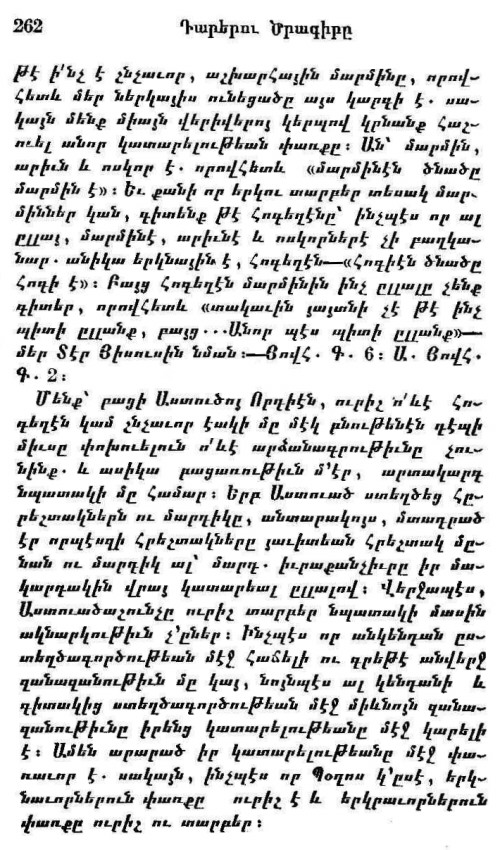 262 Դարերու Ծրագիրը
թէ ի՛նչ է չնչաւոր, աշխարհային մարմինը, որով-
հետև մեր ներկայիս ունեցածը այս կարգի է. սա-
կայն մենք միայն վերիվերոյ կերպով կրնանք հաշ-
ուել անոր կատարելութեան փառքը։ Ան՝ մարմին,
արիւն և ոսկոր է. որովհետև «մարմինէն ծնածը
մարմին է»։ Եւ քանի որ երկու տարբեր տեսակ մար-
միններ կան, գիտենք թէ հոգեղէնը՝ ինչպէս որ ալ
ըլլայ, մարմինէ, արիւնէ և ոսկորներէ չի բաղկա-
նար. անիկա երկնային է, հոգեղէն—«հոգիէն ծնածը
հոգի է»։ Բայց հոգեղէն մարմինին ինչ ըլլալը չենք
գիտեր, որովհետև «տակաւին յայտնի չէ թէ ինչ
պիտի ըլլանք, բայց ...Անոր պէս պիտի ըլլանք»—
մեր Տէր Յիսուսին նման։—Յովհ. Գ. 6։ Ա. Յովհ.
Գ. 2։
Մենք՝ բացի Աստուծոյ Որդիէն, ուրիշ ո՛ևէ հո-
գեղէն կամ շնչաւոր էակի մը մէկ բնութենէն դէպի
միւսը փոխուելուն ո՛ևէ արձանագրութիւնը չու-
նինք. և ասիկա բացառութիւն մ՚էր, արտակարգ
նպատակի մը համար։ Երբ Աստուած ստեղծեց հը-
րեշտակներն ու մարդիկը, անտարակոյս, մտադրած
էր որպէսզի հրեշտակները յաւիտեան հրեշտակ մը-
նան ու մարդիկ ալ՝ մարդ. իւրաքանչիւրը իր մա-
կարդակին վրայ կատարեալ ըլլալով։ Վերջապէս,
Աստուածաշունչը ուրիշ տարբեր նպատակի մասին
ակնարկութիւն չ՚ըներ։ Ինչպէս որ անկենդան ըս-
տեղծագործութեան մէջ հաճելի ու գրեթէ անվերջ
զանազանութիւն մը կայ, նոյնպէս ալ կենդանի և
գիտակից ստեղծագործութեան մէջ միևնոյն զանա-
զանութիւնը իրենց կատարելութեանը մէջ կարելի
է։ Ամեն արարած իր կատարելութեանը մէջ փա-
ռաւոր է. սակայն, ինչպէս որ Պօղոս կ՚ըսէ, երկ-
նաւորներուն փառքը ուրիշ է և երկրաւորներուն
փառքը ուրիշ ու տարբեր։